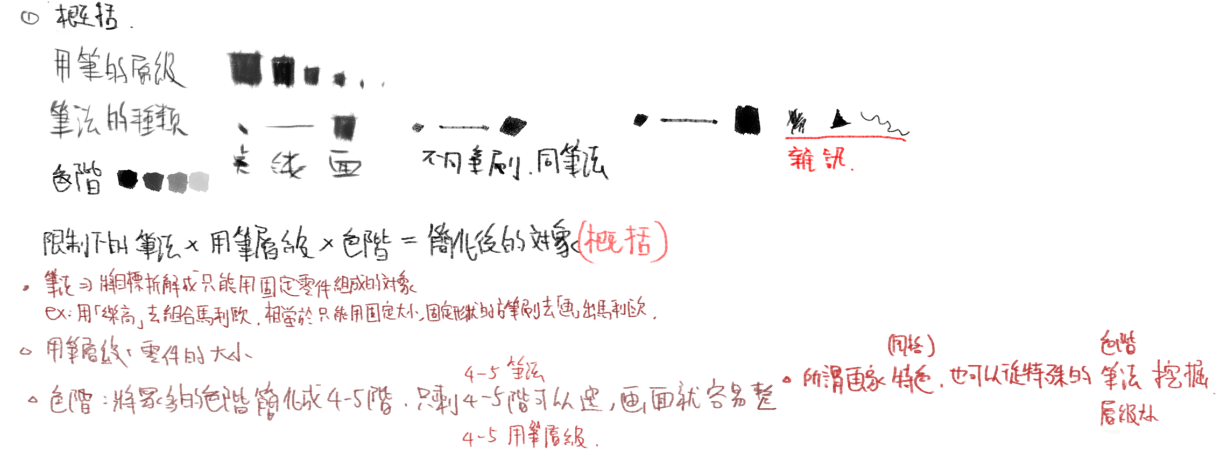 ① 概括.
用筆的層級
筆法的種類
点 线 面
不同筆刷.同筆法
雜訊.
色階
限制下的筆法×用筆層級×色階=簡化後的対象(概括)
• 筆法⇒將目標拆解成只能用固定零件組成的対象
ex:用「樂高」去組合馬利歐.相當於只能用固定大小,固定形狀的方筆刷去「画」出馬利歐.
○ 用筆層級:零件的大小
4-5 筆法
○ 色階:將眾多的色階簡化成4-5階.只剩4-5階可以選,画面就容易整
4-5 用筆層級.
色階
• 所謂画家特色.也可以從特殊的 筆法 挖掘
層級